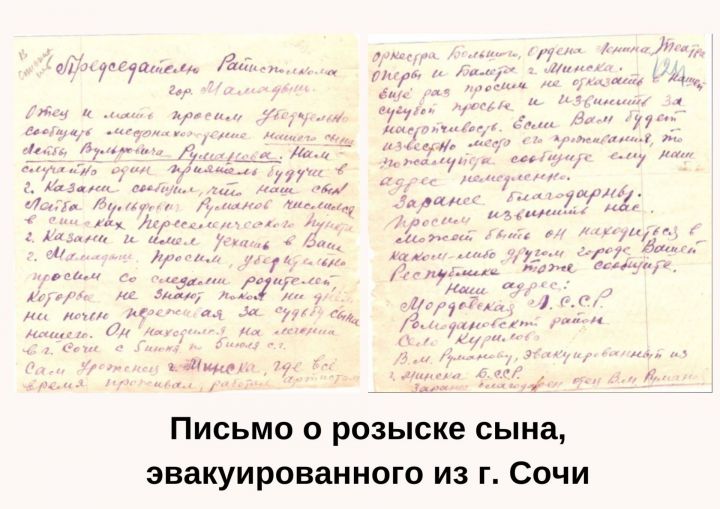 В
Председателю Райисполкома
гор. Мамадыш.
Отец и мать просим убедительно
сообщить местонахождение нашего сына
Лейбы Вульфовича Руманова. Нам
случайно один приятель будучи в
г. Казани сообщил, что наш сын
Лейба Вульфович Руманов числился
в списках Переселенческого Пункта
г. Казани и имел уехать в Ваш
г. Мамадыш. Просим, убедительно
просим со следами родителей
которые не знают покоя ни днём
ни ночью переживая за судьбу сына
нашего. Он находился на лечении
в г. Сочи с 5 июня по 5 июля с.г.
Сам уроженец г. Минска, где всё
время проживал, работал артистом
оркестра Большого, Ордена Ленина, Театра
Оперы и Балета г. Минска.
Ещё раз просим не отказать в нашей
сугубой просьбе и извинить за
настойчивость. Если Вам будет
известно место его проживания, то
пожалуйста сообщите ему наш
адрес немедленно.
Заранее благодарны.
Просим извинить нас.
Может быть он находиться в
каком-либо другом городе Вашей
Республике тоже сообщите.
Наш адрес:
Мордовская А.С.С.Р.
Ромодановский район
Село Курилово
В.М. Руманову, эвакуированный из
г. Минска Б.С.С.Р.
Заранее благодарен отец В.М. Руманов
Письмо о розыске сына,
эвакуированного из г. Сочи